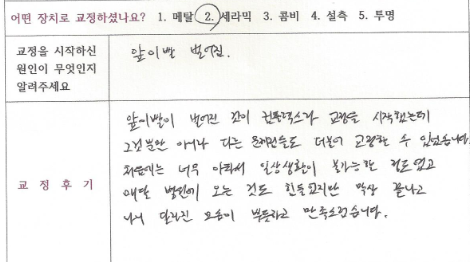 어떤 장치로 교정하셨나요? 1. 메탈 2. 세라믹 3. 콤비 4. 설측 5. 투명
교정을 시작하신
원인이 무엇인지
알려주세요
앞이빨 벌어짐.
교 정 후 기
앞이빨이 벌어진 것이 컴플렉스라 교정을 시작했는데
그것뿐만 아니라 다른 문제점들도 더불어 교정할 수 있었습니다.
처음에는 너무 아파서 일상생활이 불가능한 정도였고
매달 병원에 오는 것도 힘들었지만 막상 끝나고
나니 달라진 모습이 뿌듯하고 만족스럽습니다.